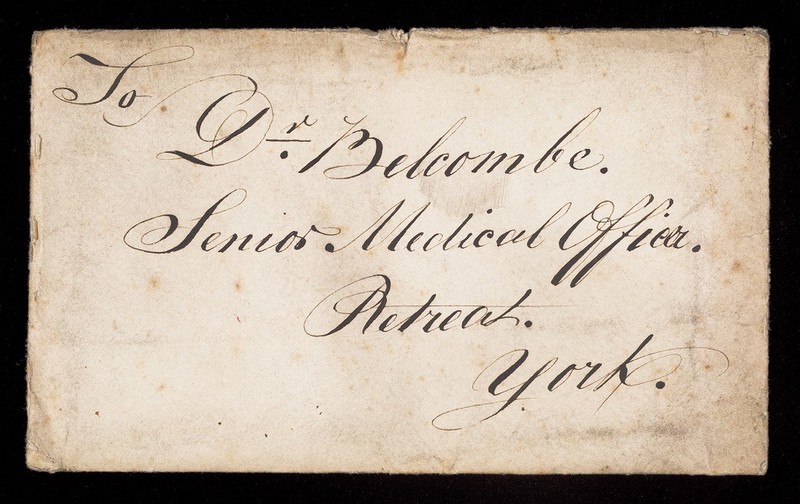 To
Dr. Belcombe.
Senior Medical Officer.
Retreat.
York.